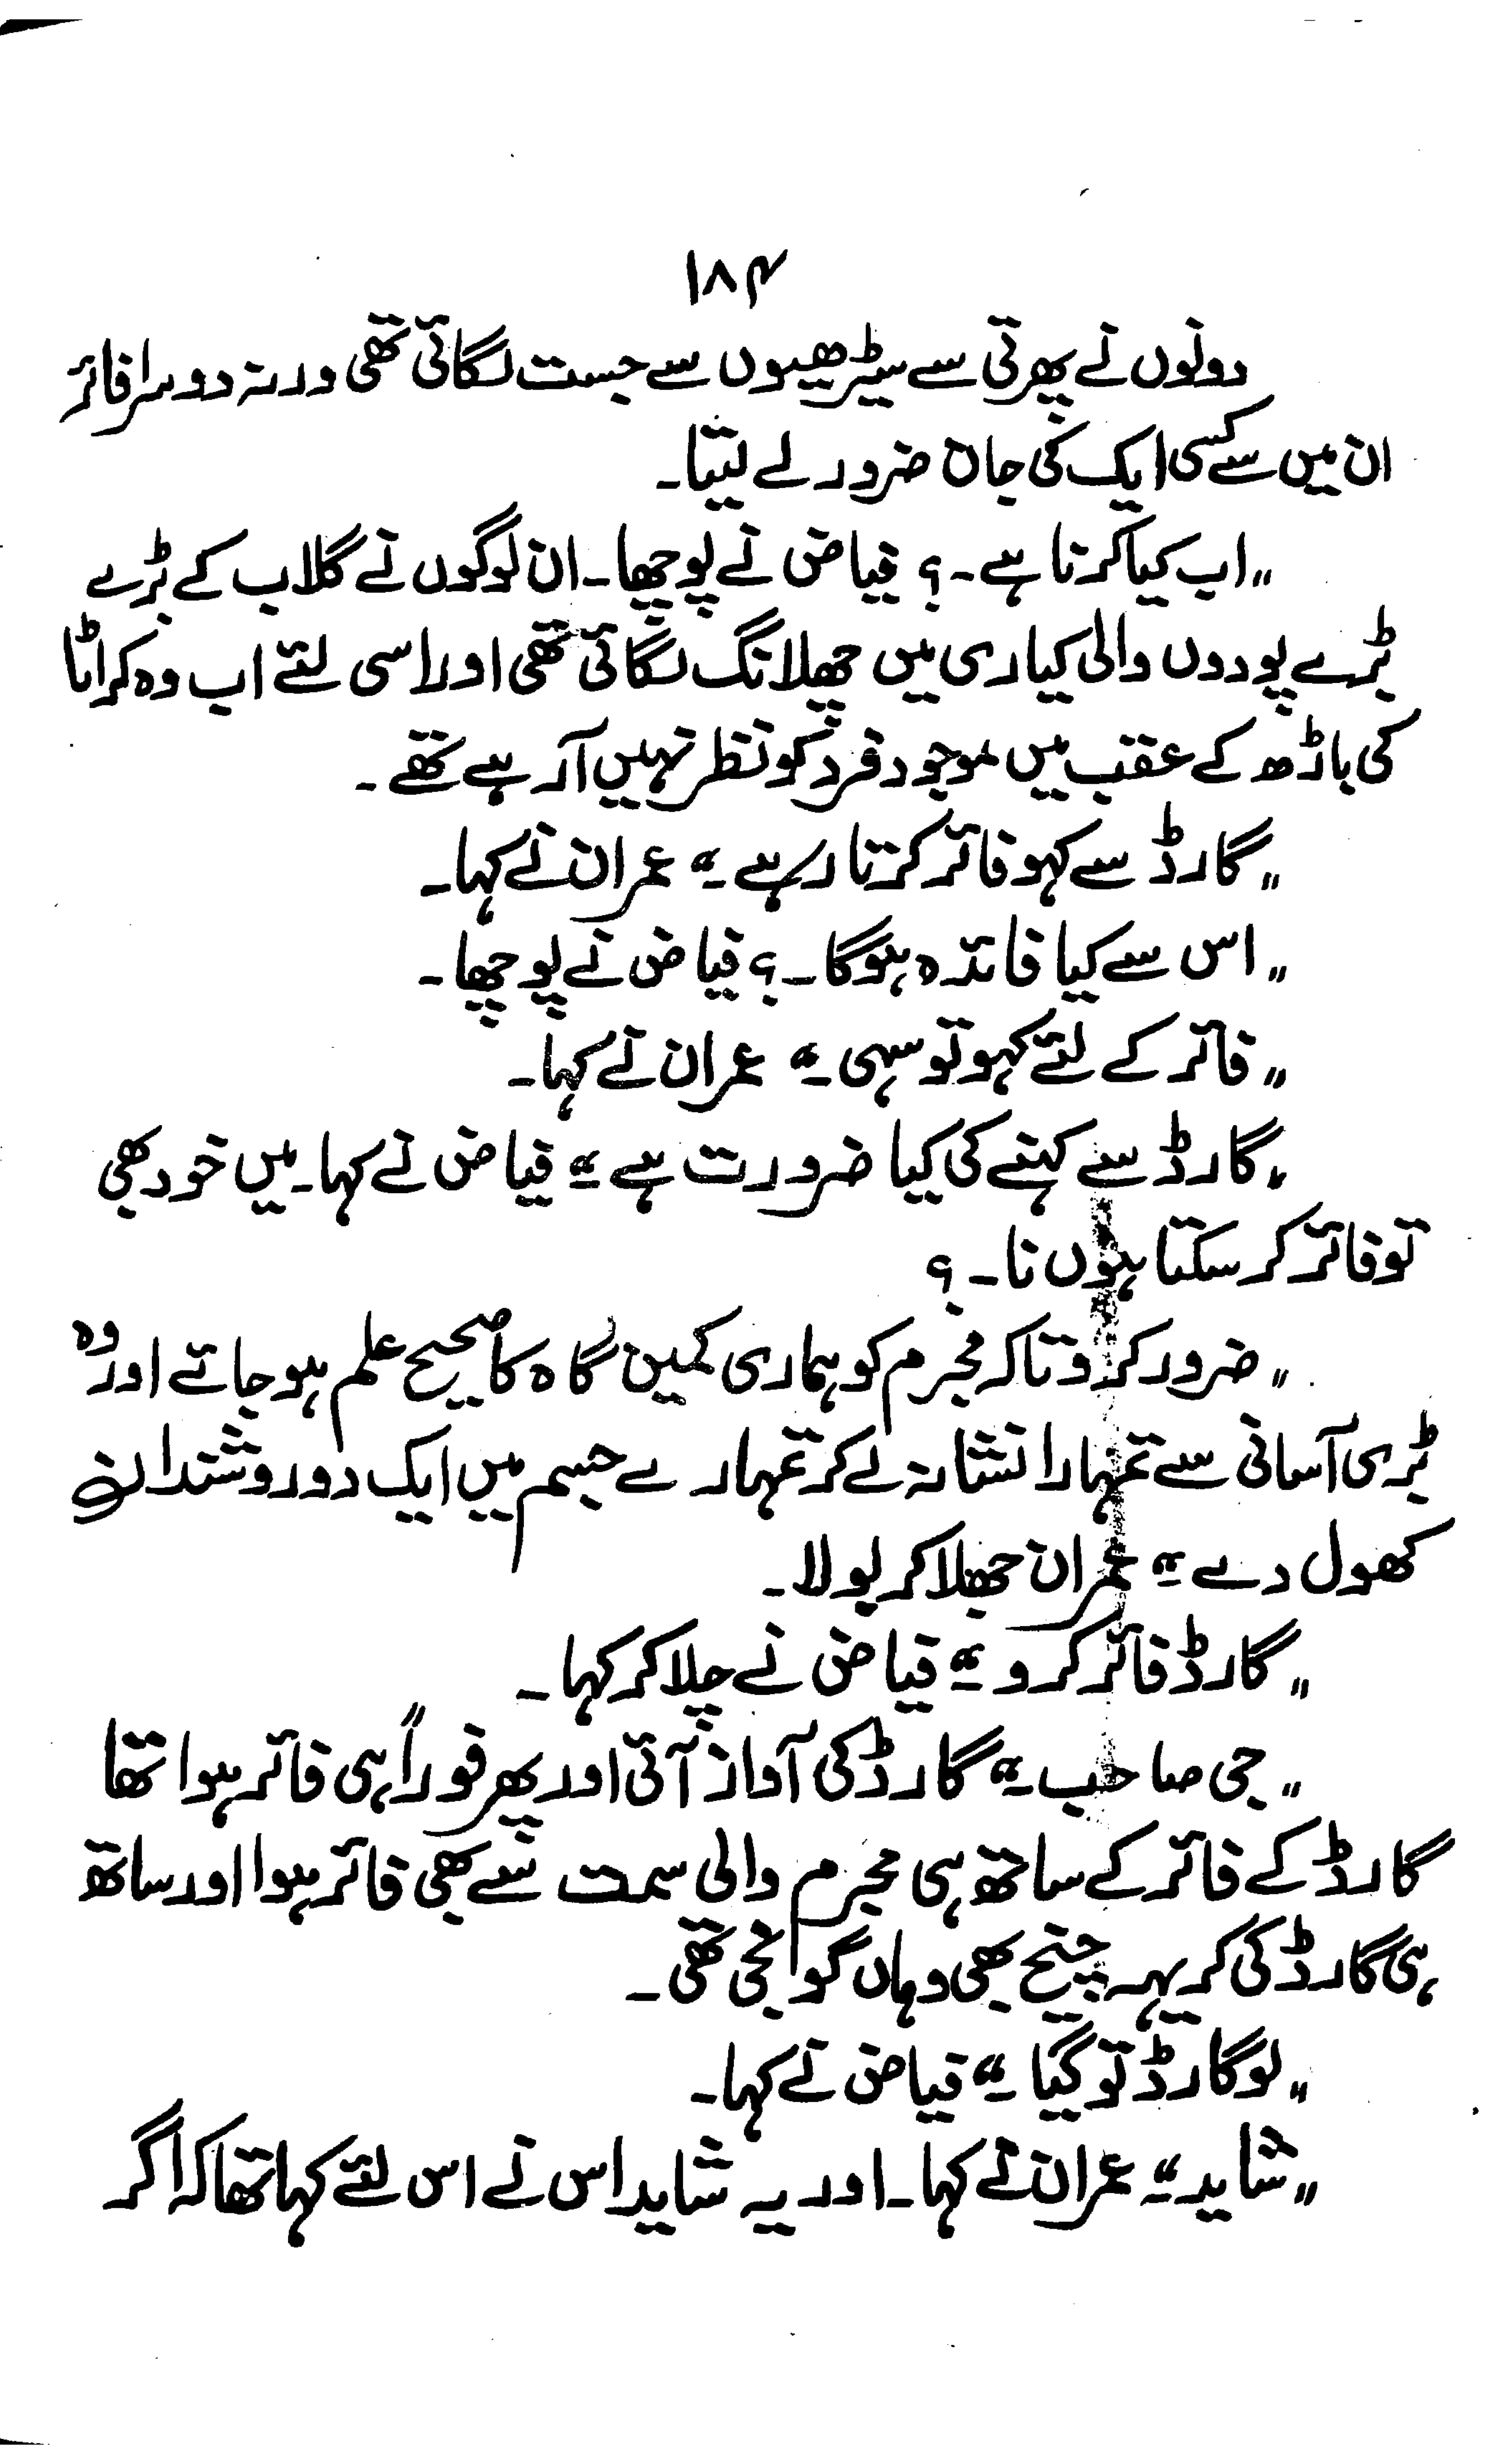 ۱۸۴
دونوں نے پھرتی سے سیڑھیوں سے جست لگائی تھی ورنہ دوسرا فائر
ان میں سے کسی ایک کی جان ضرور لے لیتا۔
„ اب کیا کرنا ہے ۔؟ فیاض نے پوچھا ۔ ان لوگوں نے گلاب کے بڑے
بڑے پودوں والی کیاری میں چھلانگ لگائی تھی اور اسی لئے اب وہ کراٹا
کی باڑھ کے عقب میں موجود فرد کو نظر نہیں آ رہے تھے ۔
„ گارڈ سے کہو فائر کرتا رہے ۔“ عمران نے کہا ۔
„ اس سے کیا فائدہ ہوگا ۔؟ فیاض نے پوچھا ۔
„ فائر کے لئے کہو تو سہی ۔“ عمران نے کہا ۔
„ گارڈ سے کہنے کی کیا ضرورت ہے ۔“ فیاض نے کہا ۔ میں خود بھی
تو فائر کر سکتا ہوں نا ۔ ؟
„ ضرور کرو تاکہ مجرم کو ہماری کمین گاہ کا صحیح علم ہو جائے اور وہ
بڑی آسانی سے تمہارا نشانہ لے کر تمہارے جسم میں ایک دو روشندان
کھول دے ۔“ عمران جھلا کر بولا ۔
„ گارڈ فائر کرو ۔“ فیاض نے چلا کر کہا ۔
„ جی صاحب ۔“ گارڈ کی آواز آئی اور پھر فوراً ہی فائر ہوا تھا
گارڈ کے فائر کے ساتھ ہی مجرم والی سمت سے بھی فائر ہوا اور ساتھ
ہی گارڈ کی کریہہ چیخ بھی وہاں گونجی تھی ۔
„ لو گارڈ تو گیا ۔“ فیاض نے کہا ۔
„ شاید ۔“ عمران نے کہا ۔ اور یہ شاید اس نے اس لئے کہا تھا کہ اگر